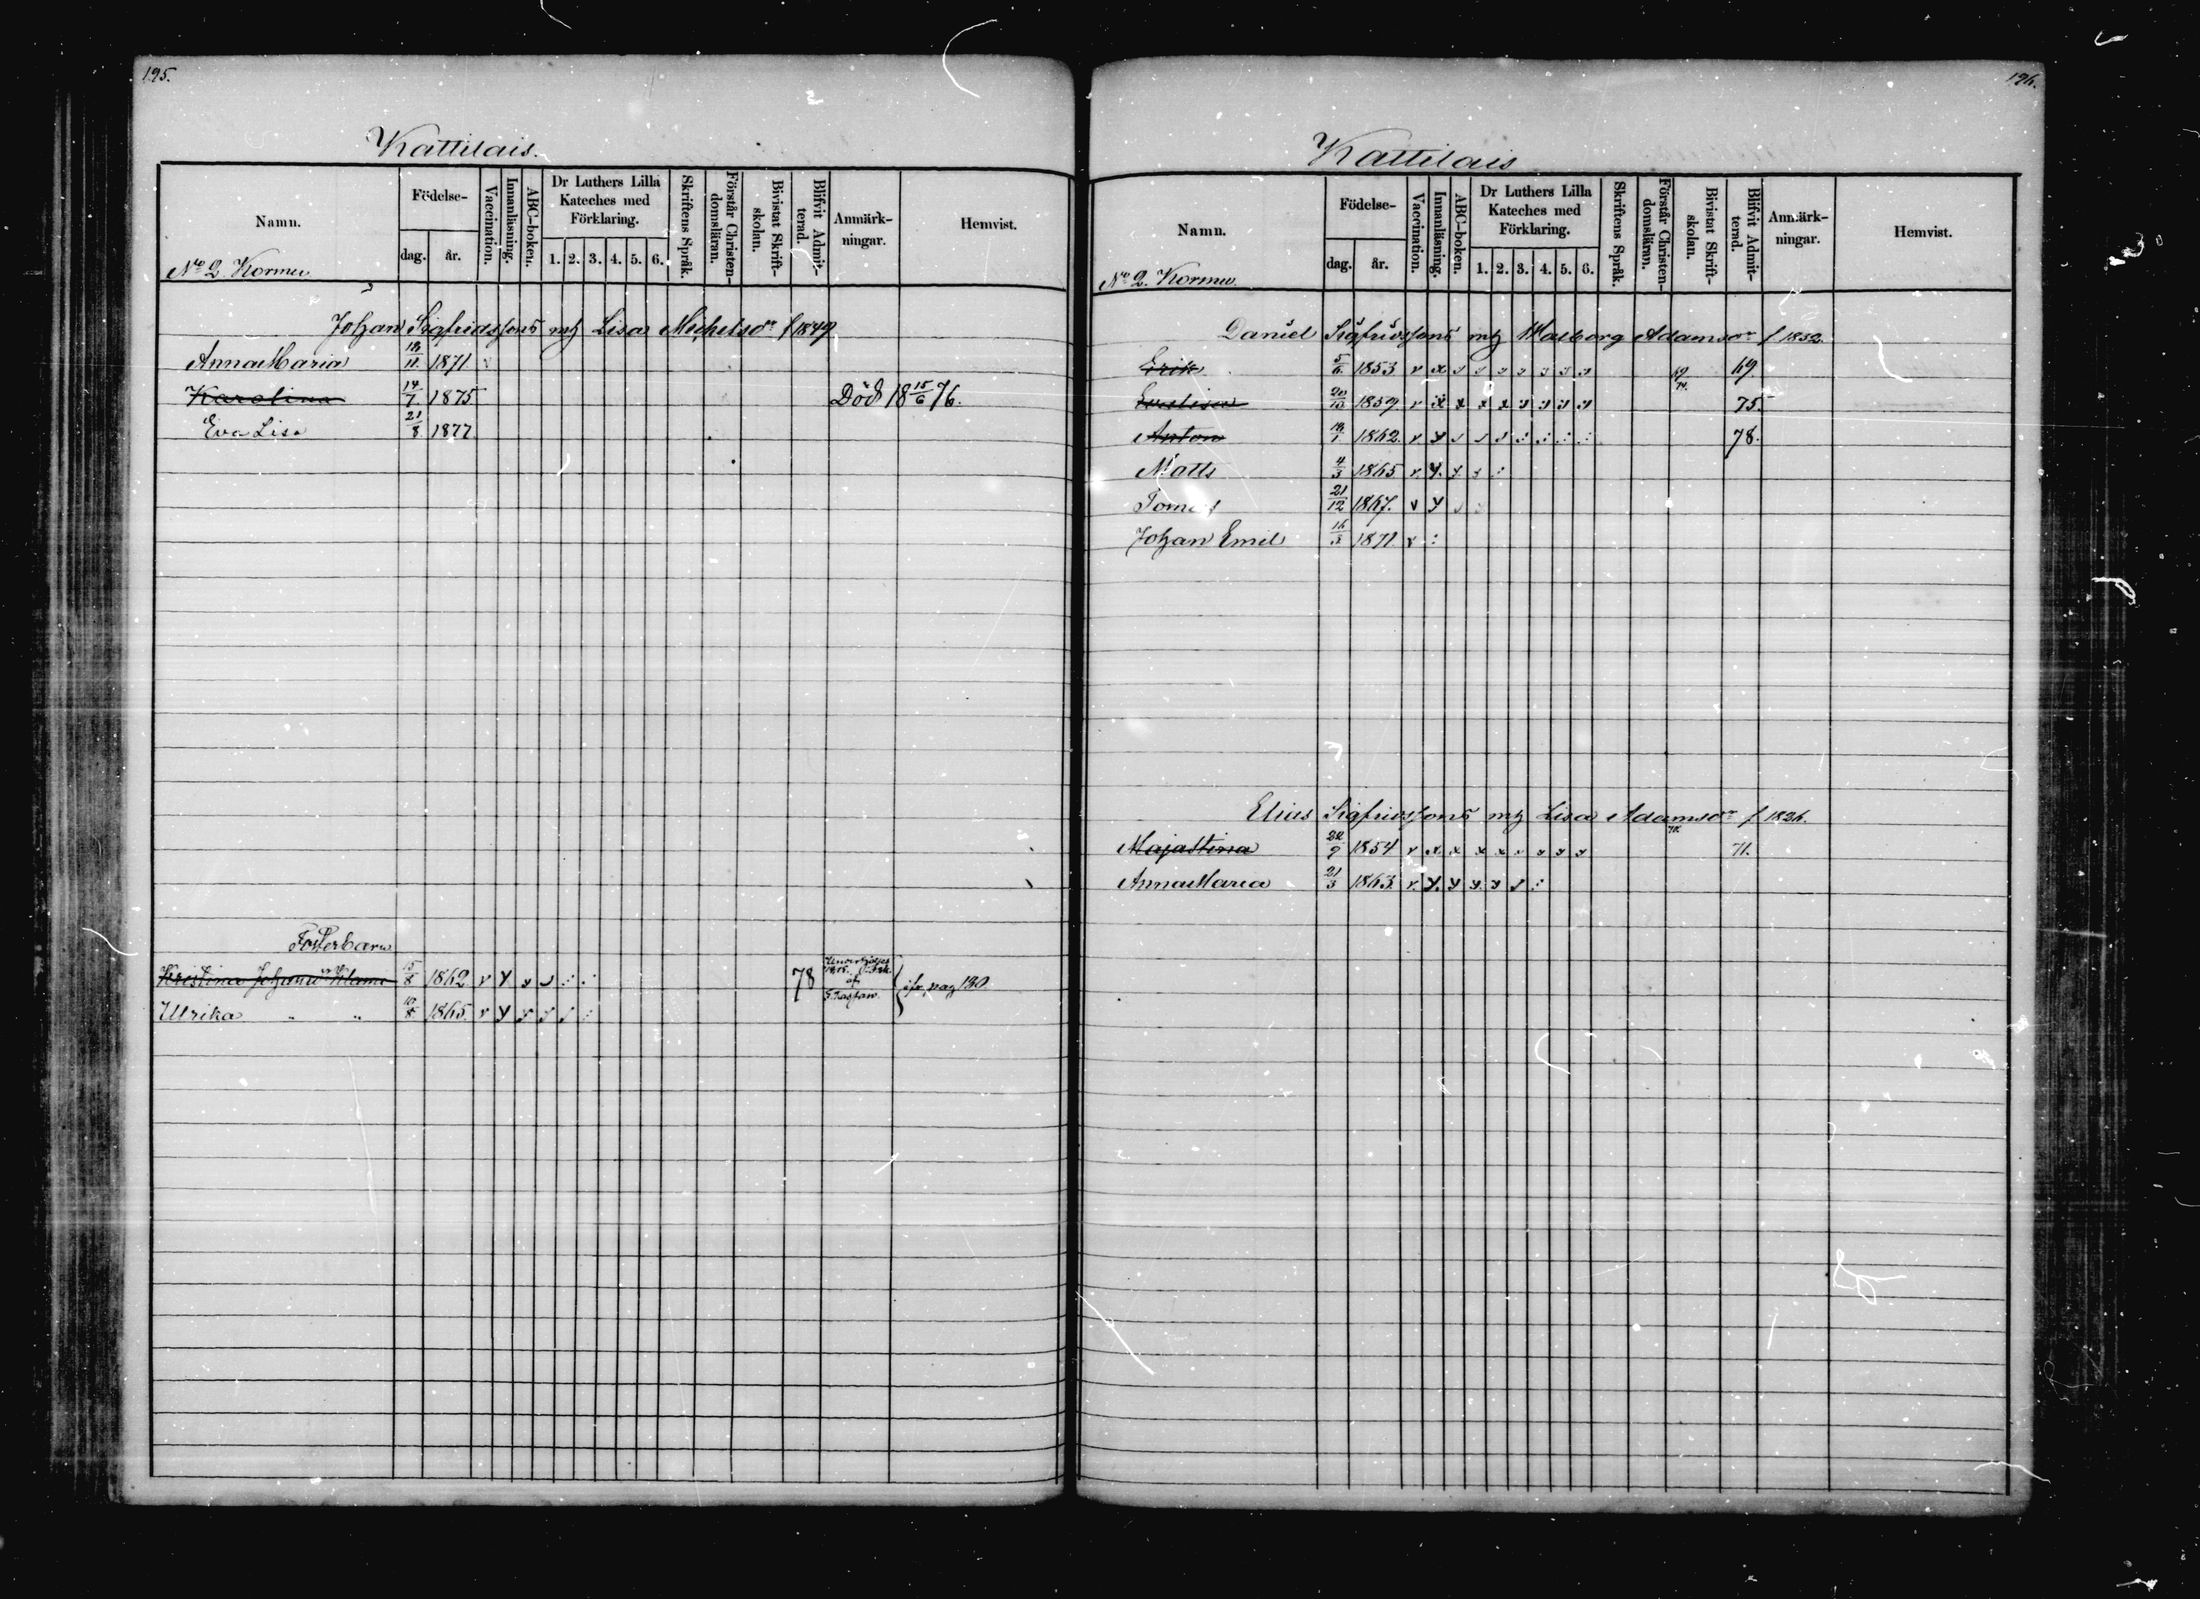 195.
Kattilais.
Namn.
Födelse-
dag. år.
Vaccination.
Innanläsning.
ABC-boken.
Dr Luthers Lilla
Kateches med
Förklaring.
1. 2. 3. 4. 5. 6.
Skriftens Språk.
Förstår Christen-
domsläran.
Bivistat Skrift-
skolan.
Blifvit Admit-
terad.
Anmärk-
ningar.
Hemvist.
No 2 Kormu
Johan Sigfridssons m/h Lisa Michelsdr f 1849
Anna Maria 11 1871
Karolina 14/7 1875 Död 18 15/6 76.
Eva Lisa 21/8 1877
Fosterbarn
Kristina Johansdr 1862 v y 78
af
pag 130.
Ulrika " " 10/8 1865. v y
196.
Kattilais
Namn.
Födelse-
dag. år.
Vaccination.
Innanläsning.
ABC-boken.
Dr Luthers Lilla
Kateches med
Förklaring.
1. 2. 3. 4. 5. 6.
Skriftens Språk.
Förstår Christen-
domsläran.
Bivistat Skrift-
skolan.
Blifvit Admit-
terad.
Anmärk-
ningar.
Hemvist.
No 2. Kormu
Daniel Sigfridssons m/h Walborg Adamsdr f 1832.
Erik 5/6 1853 v x 69
Evalisa 20/10 1859 v x x x x 75.
Anton 1862. v y 78.
Matts 4/3 1865 v. y. y.
Tomas 21/12 1867. v y
Johan Emil 16/3 1871 v :
Elias Sigfridssons m/h Lisa Adamsdr f 1826.
Majastina 9 1854 v x x x x 71.
Anna Maria 21/3 1863. v. y. y y. y